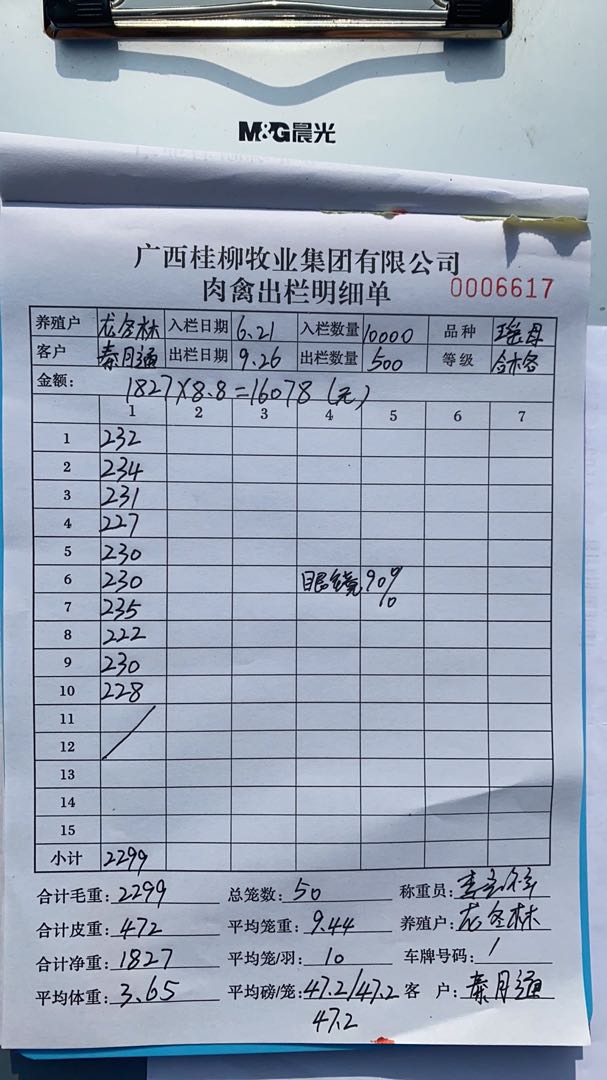 M&G晨光
广西桂柳牧业集团有限公司
肉禽出栏明细单 0006617
养殖户 龙冬林 入栏日期 6.21 入栏数量 10000 品种 瑶母
客户 秦月通 出栏日期 9.26 出栏数量 500 等级 合格
金额: 1827×8.8=16078 (元)
1 2 3 4 5 6 7
1 232
2 234
3 231
4 227
5 230
6 230 眼线90%
7 235
8 222
9 230
10 228
11
12
13
14
15
小计 2299
合计毛重: 2299 总笼数: 50 称重员:
合计皮重: 472 平均笼重: 9.44 养殖户: 龙冬林
合计净重: 1827 平均笼/羽: 10 车牌号码: /
平均体重: 3.65 平均磅/笼: 47.2/47.2 客户: 秦月通
47.2